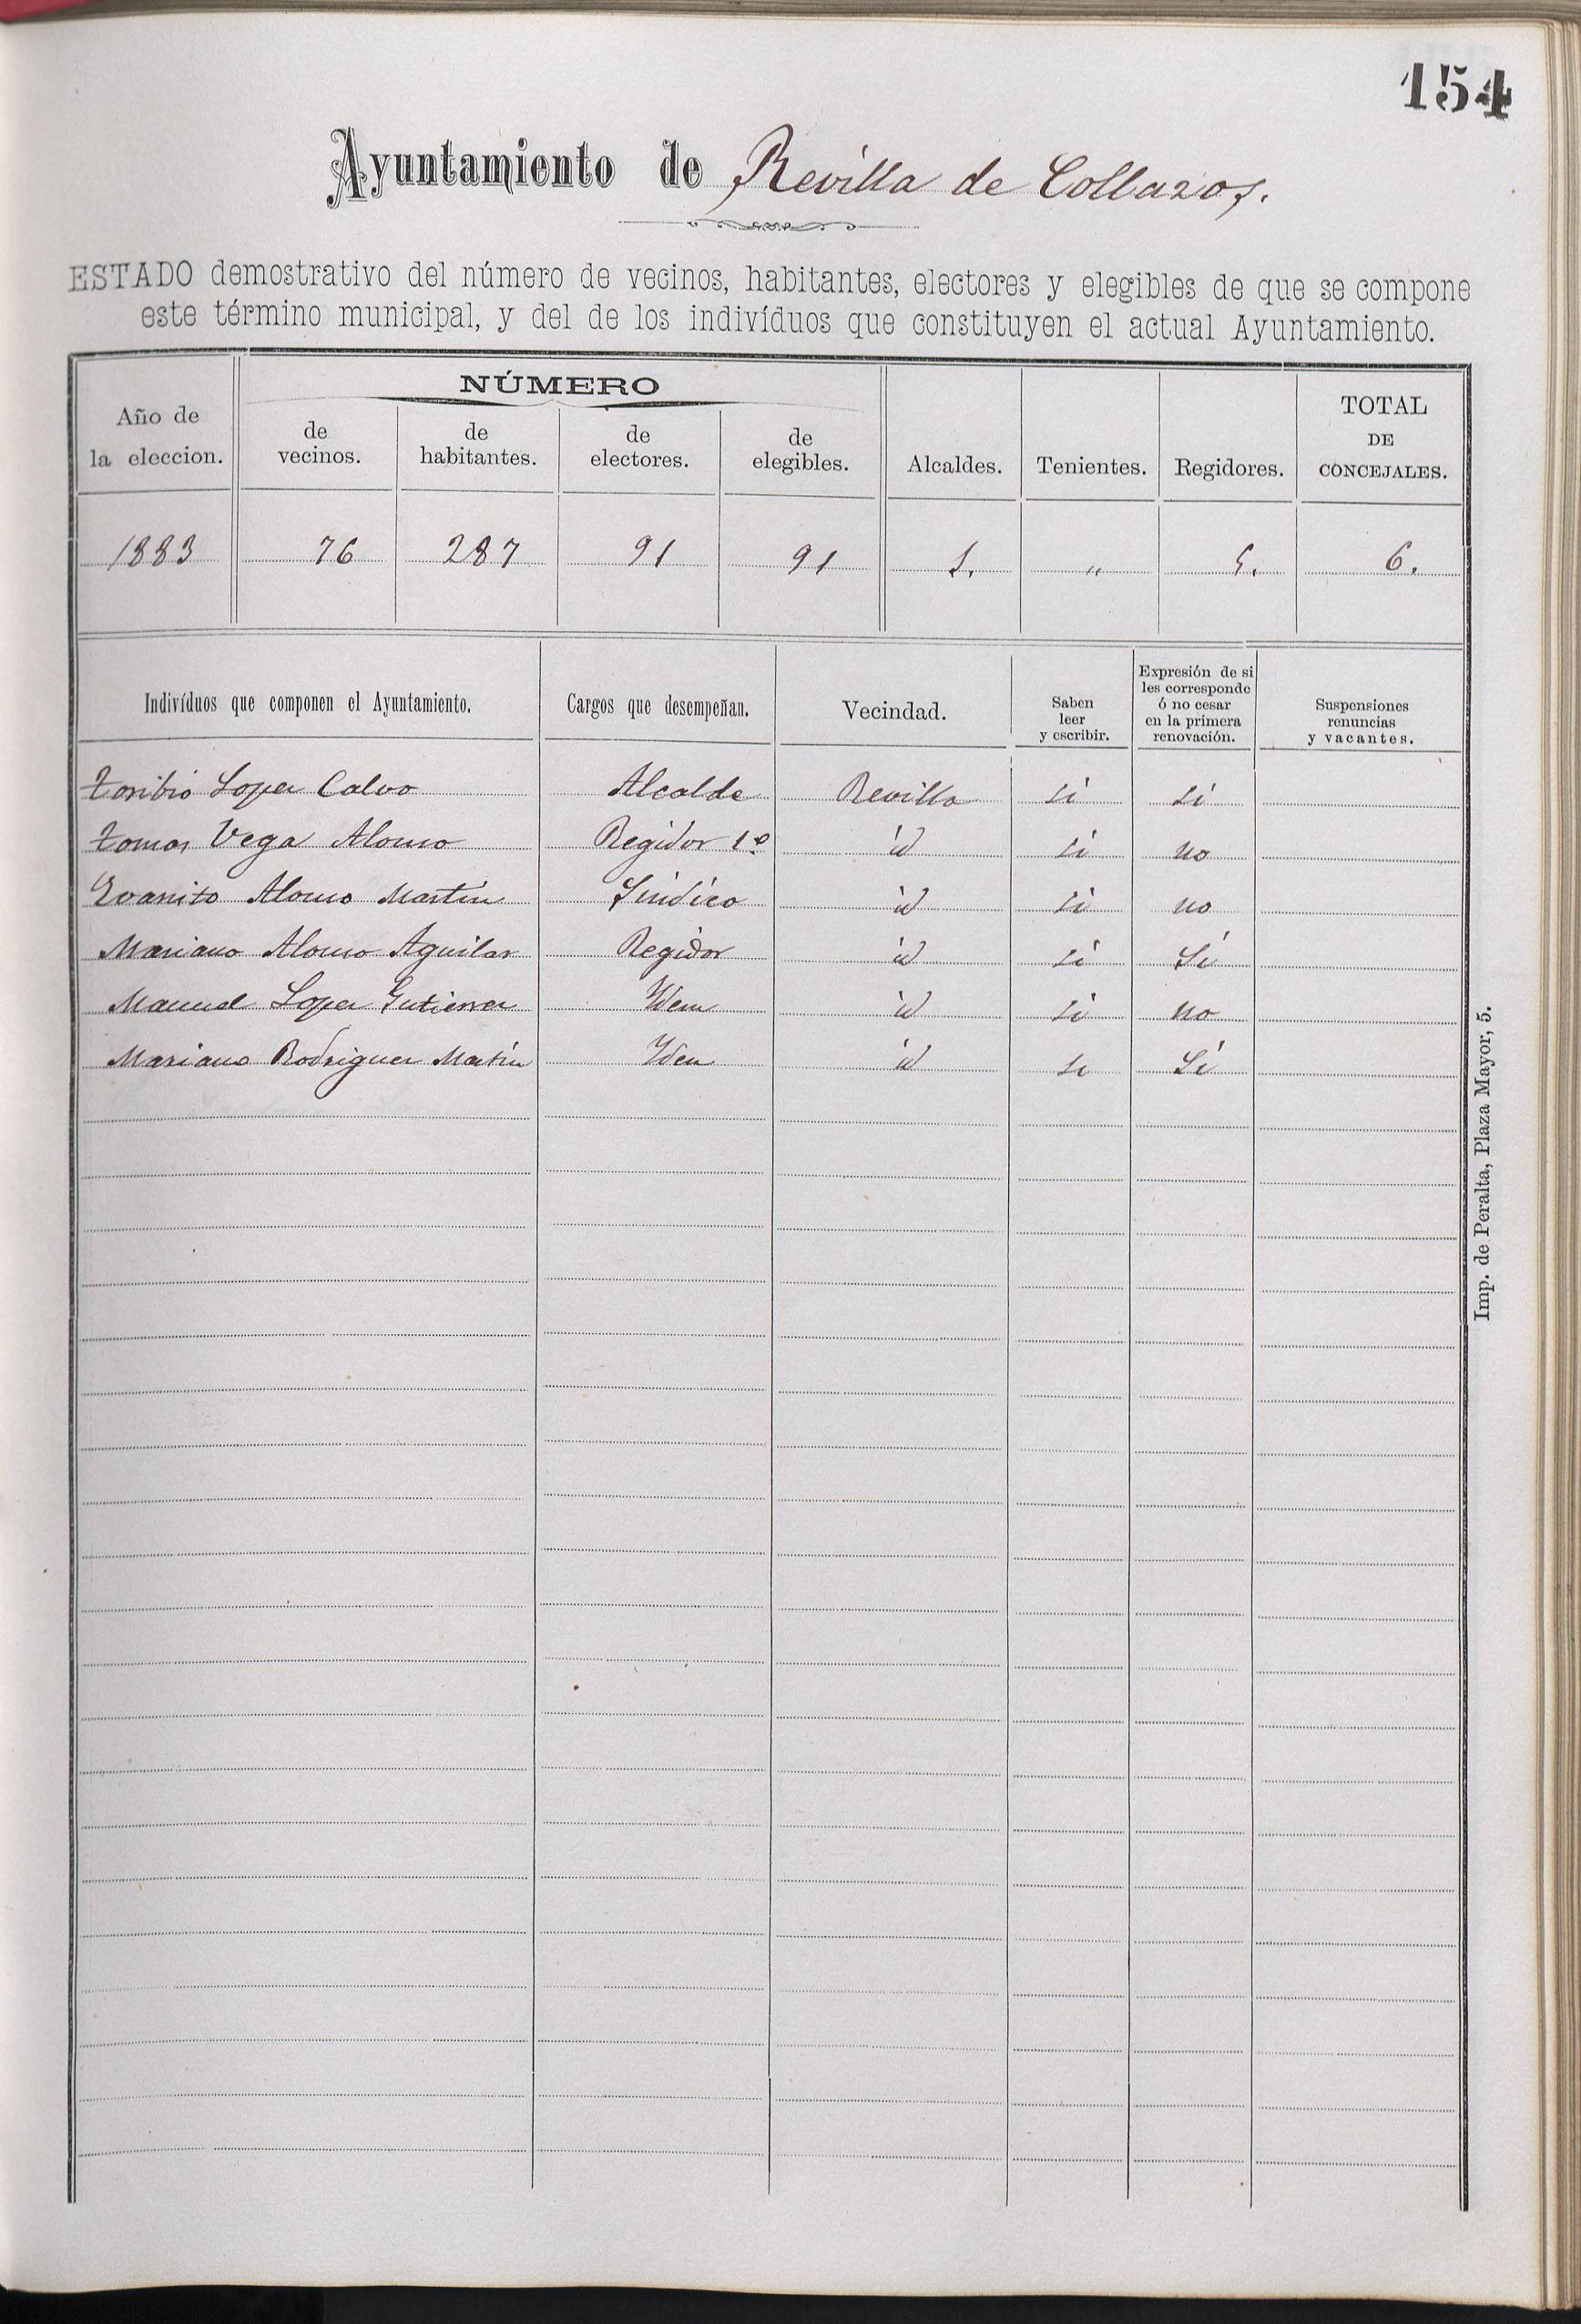 154
Ayuntamiento de Revilla de Collazos.
ESTADO demostrativo del número de vecinos, habitantes, electores y elegibles de que se compone
este término municipal, y del de los indivíduos que constituyen el actual Ayuntamiento.
Año de la eleccion. NÚMERO de vecinos. de habitantes. de electores. de elegibles. Alcaldes. Tenientes. Regidores. TOTAL DE CONCEJALES.
1883 76 287 91 91 1. " 5. 6.
Indivíduos que componen el Ayuntamiento. Cargos que desempeñan. Vecindad. Saben leer y escribir. Expresión de si les corresponde ó no cesar en la primera renovación. Suspensiones renuncias y vacantes.
Toribio Lopez Calvo Alcalde Revilla si si
Tomas Vega Alonso Regidor 1º id si no
Alonso Martin Sindico id si no
Mariano Alonso Aguilar Regidor id si Si
Manuel Lopez Gutierrez Idem id si no
Mariano Rodriguez Martin Iden id si Si
Imp. de Peralta, Plaza Mayor, 5.